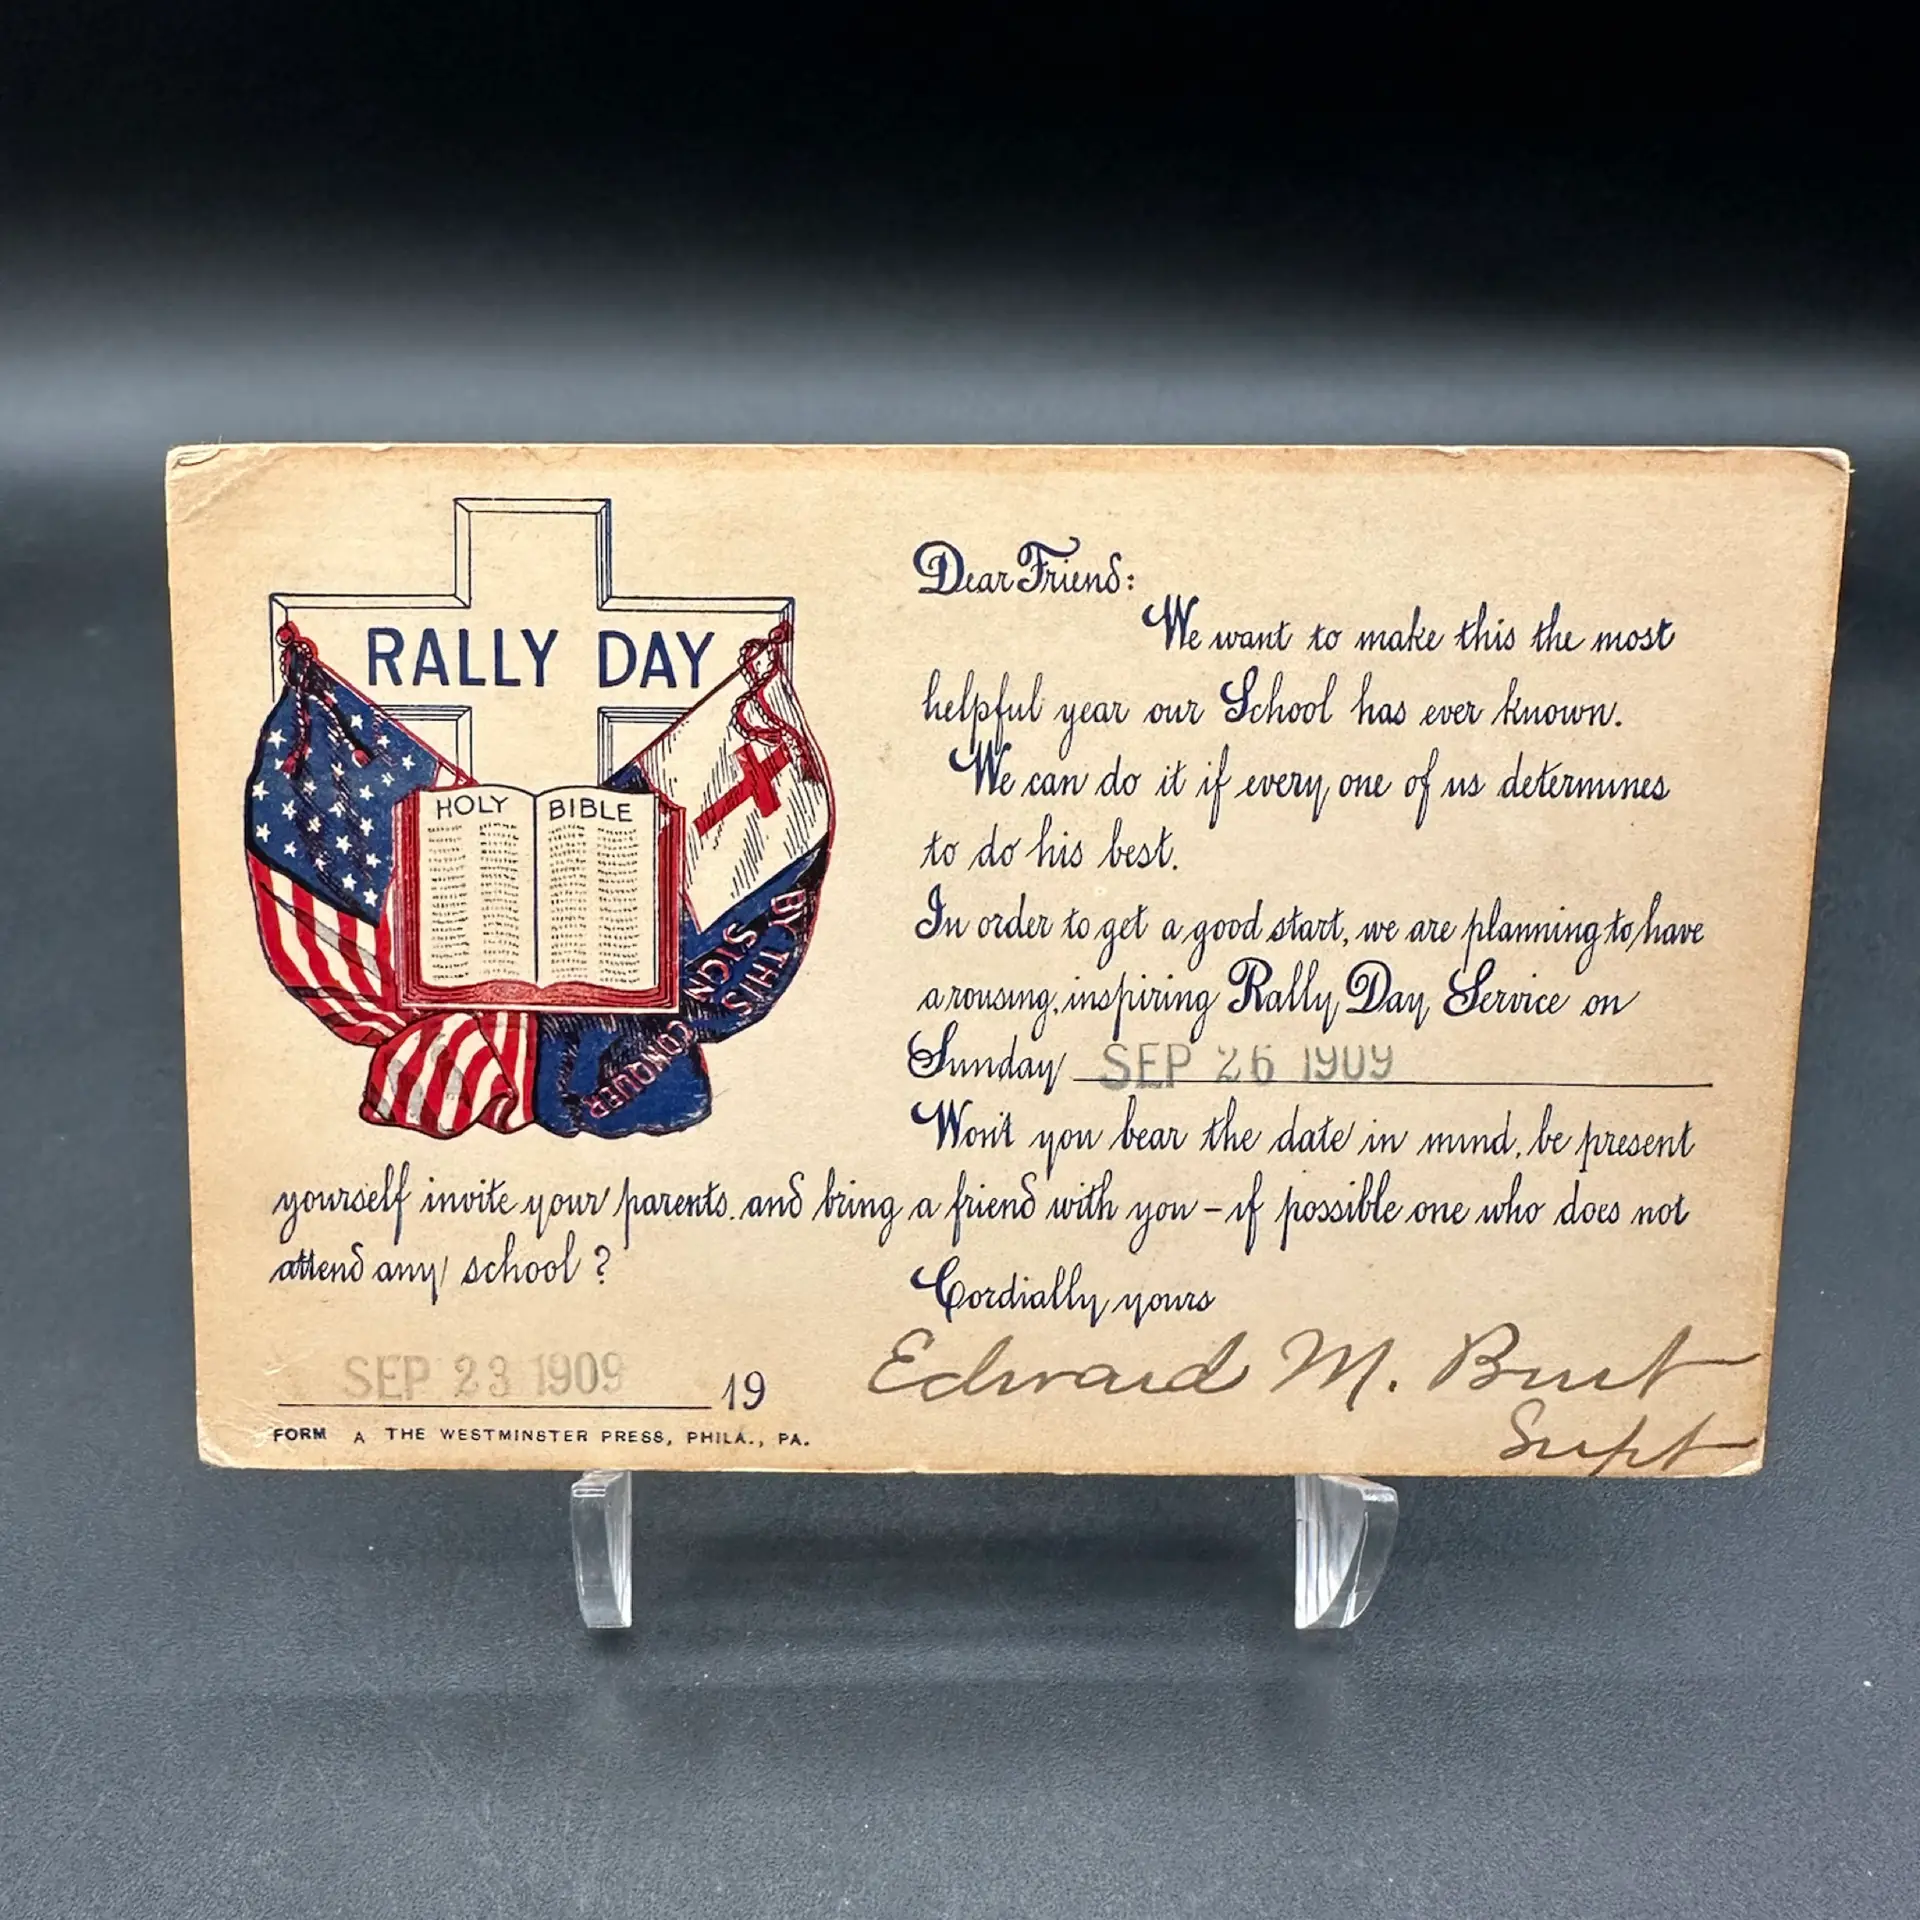 RALLY DAY
HOLY BIBLE
BY THIS
SIGN
CONQUER
Dear Friend:
We want to make this the most
helpful year our School has ever known.
We can do it if every one of us determines
to do his best.
In order to get a good start, we are planning to have
a rousing, inspiring Rally Day Service on
Sunday SEP 26 1909
Won't you bear the date in mind, be present
yourself invite your parents. and bring a friend with you – if possible one who does not
attend any school?
Cordially yours
Edward M. Burt
Supt
SEP 23 1909 19
FORM A THE WESTMINSTER PRESS, PHILA., PA.